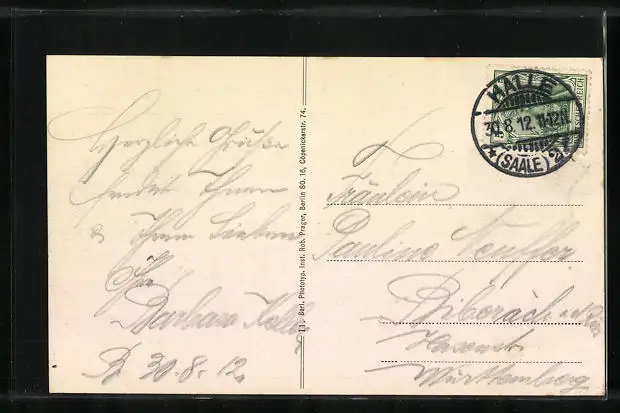 Herzliche Grüße
sendet Ihnen
& Ihren Lieben
Ihre
Barbara
B 30.8.12
11. Berl. Phototyp. Inst. Rob. Prager, Berlin SO. 16, Cöpenickerstr. 74.
HALLE
30.8.12. 11-12
* (SAALE) 2
DEUTSCHES REICH
Fräulein
Pauline Neuffer
Biberach
Württemberg